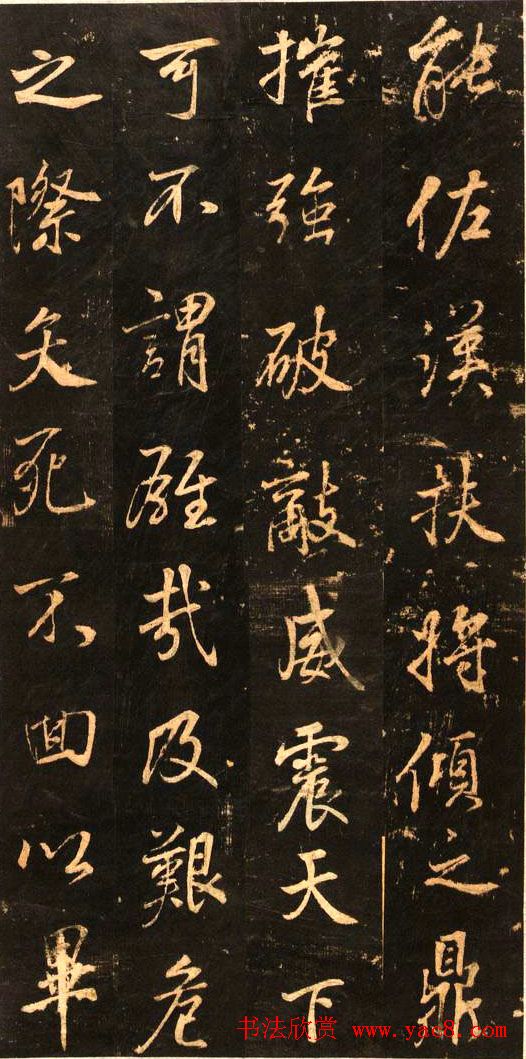 能佐漢扶將傾之鼎
摧強破敵威震天下
可不謂雄哉及艱危
之際矢死不回以畢
书法欣赏 www.yac8.com